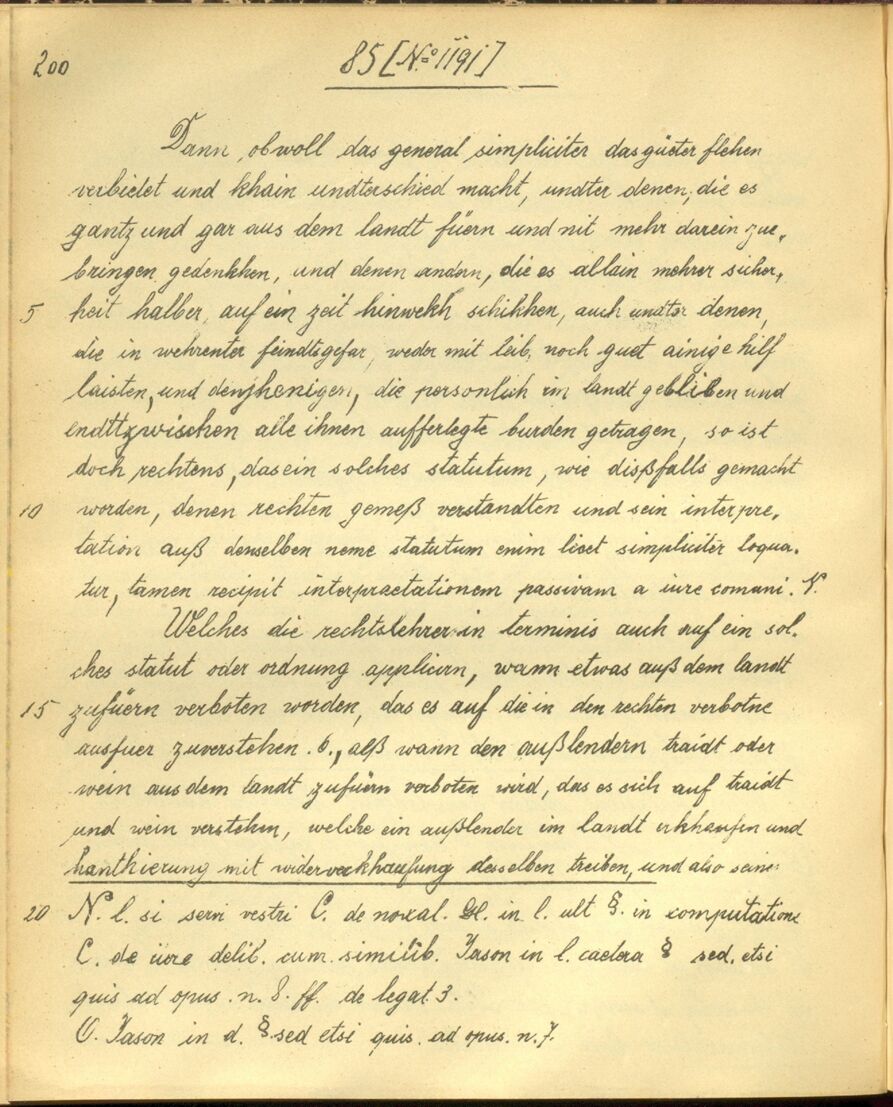 200
85 [N.º 1191]
Dann, obwoll das general simpliciter das güeter flehen
verbietet und khain undterschied macht, undter denen, die es
gantz und gar aus dem landt füern und nit mehr darein zue,
bringen gedenkhen, und denen andern, die es allain mehrer sicher,
5 heit halber, auf ein zeit hinwekh schikhen, auch undter denen,
die in wehrenter feindtsgefar, weder mit leib, noch guet ainige hilf
laisten, und denjhenigen, die personlich im landt gebliben und
endttzwischen alle ihnen aufferlegte burden getragen, so ist
doch rechtens, das ein solches statutum, wie dißfalls gemacht
10 worden, denen rechten gemeß verstandten und sein interpre,
tation auß denselben neme statutum enim licet simpliciter loqua.
tur, tamen recipit interpraetationem passivam a iure comuni. N.
Welches die rechtslehrer in terminis auch auf ein sol.
ches statut oder ordnung applicirn, wann etwas auß dem landt
15 zufüern verboten worden, das es auf die in den rechten verbotne
ausfuer zuverstehen. O., alß wann den außlendern traidt oder
wein aus dem landt zufüern verboten wird, das es sich auf traidt
und wein verstehen, welche ein außlender im landt erkhaufen und
hanthierung mit widerverkhaufung desselben treiben, und also seine
20 N. l. si servi vestri C. de noxal. Gl. in l. ult §. in computatione
C. de iure delib. cum. similib. Jason in l. caetera § sed. etsi
quis ad opus. n. 8. ff. de legat. 3.
O. Jason in d. §. sed etsi quis. ad opus. n. 7.